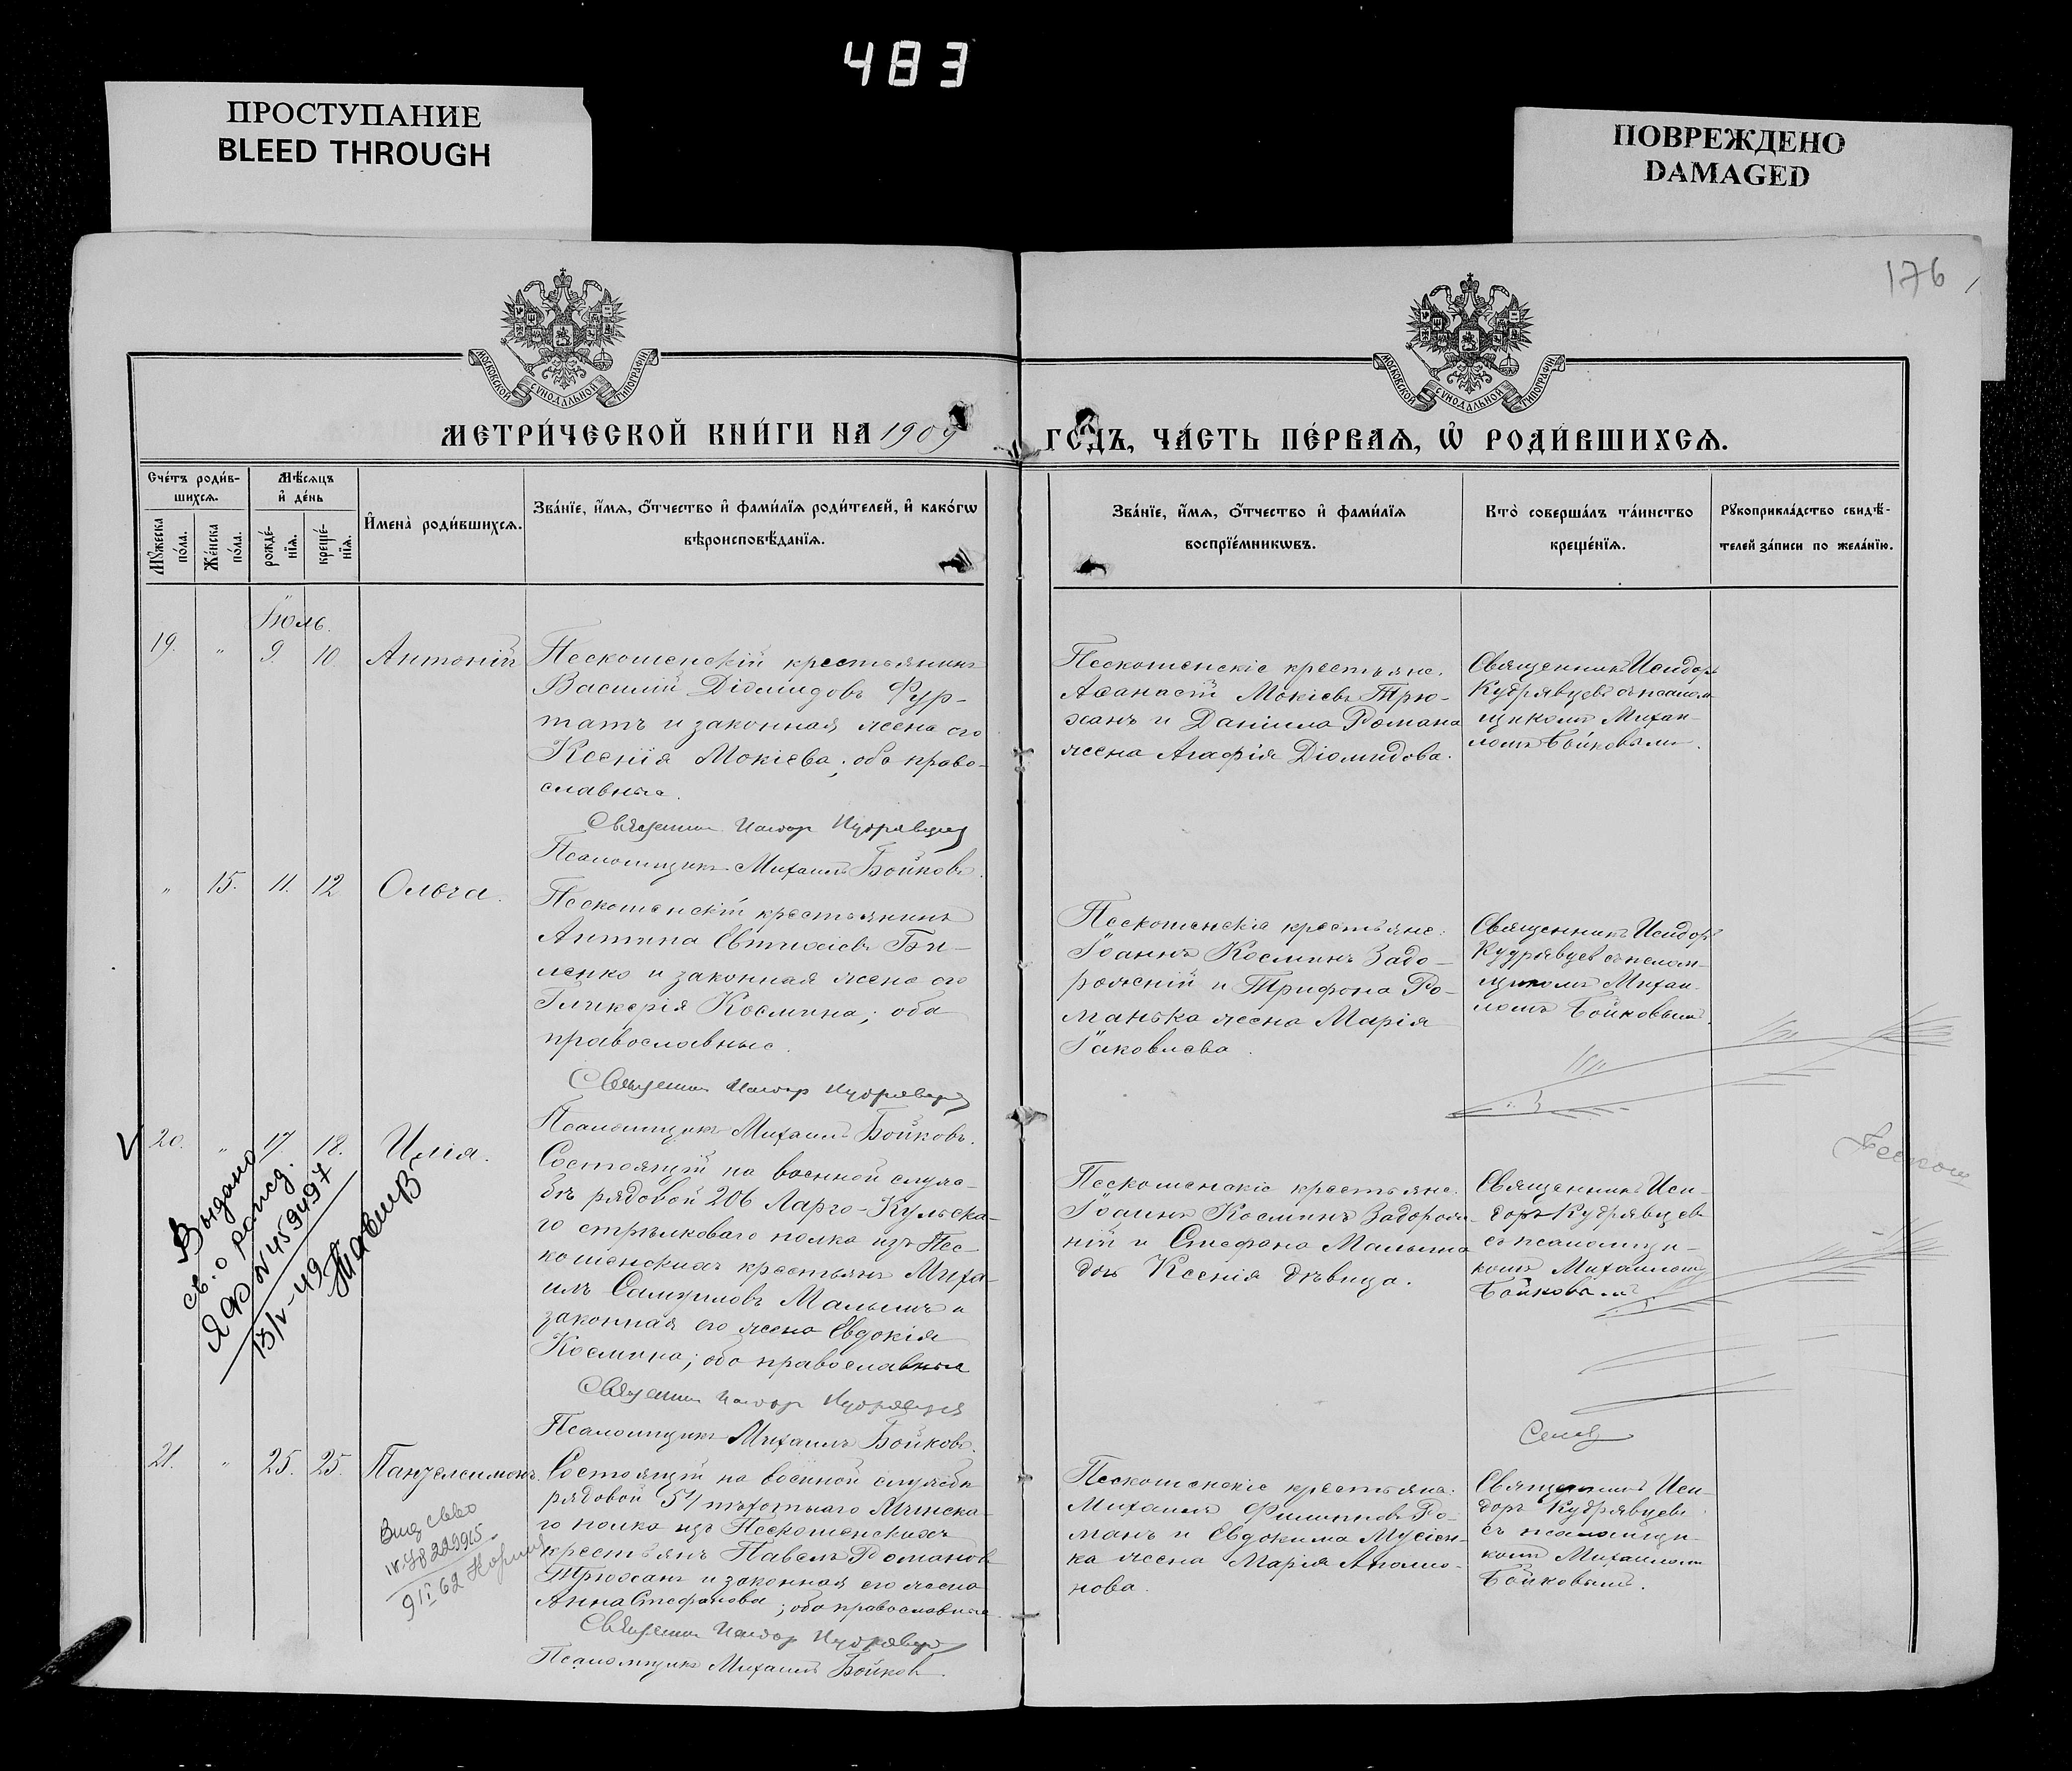 483
ПРОСТУПАНИЕ
BLEED THROUGH
ПОВРЕЖДЕНО
DAMAGED
176
МОСКОВСКОЙ СУНОДАЛЬНОЙ ТИПОГРАФІИ
МОСКОВСКОЙ СУНОДАЛЬНОЙ ТИПОГРАФІИ
МЕТРИ́ЧЕСКОЙ КНИ́ГИ НА 1909
ГОДЪ, ЧА́СТЬ ПЕ́РВАѦ, Ѡ҆ РОДИ́ВШИХСѦ.
Счетъ роди́в-
шихсѧ.
Мꙋ́жеска
по́ла.
Же́нска
по́ла.
Мѣ́сѧцъ
и҆ де́нь
рожде́-
нїѧ.
креще́-
нїѧ.
И҆мена̀ роди́вшихсѧ.
Зва́нїе, и҆́мѧ, ѻ҆́тчество и҆ фами́лїѧ роди́телей, и҆ како́гѡ
вѣроисповѣ́данїѧ.
Зва́нїе, и҆́мѧ, ѻ҆́тчество и҆ фами́лїѧ
воспрїе́мникѡвъ.
Кто̀ соверша́лъ та́инство
креще́нїѧ.
Рꙋкоприкла́дство свидѣ́-
телей за́писи по жела́нїю.
Іюль.
19. " 9. 10 Антоній
Пескошенскій крестьянинъ
Василій Діомидовъ Фур-
татъ и законная жена его
Ксенія Мокіева; оба право-
славные.
Священникъ Исидоръ Кудрявцевъ
Псаломщикъ Михаилъ Бойковъ.
Пескошенскіе крестьяне.
Аѳанасій Мокіевъ Трю-
ханъ и Даніила Романа
жена Агафія Діомидова.
Священникъ Исидоръ
Кудрявцевъ съ псалом-
щикомъ Михаи-
ломъ Бойковымъ.
" 15. 11. 12 Ольга.
Пескошенскій крестьянинъ
Антипа Евтихіевъ Би-
ленко и законная жена его
Гликерія Космина; оба
православные.
Священникъ Исидоръ Кудрявцевъ
Псаломщикъ Михаилъ Бойковъ.
Пескошенскіе крестьяне:
Іоаннъ Косминъ Задо-
рожній и Трифона Ро-
манька жена Марія
Іаковлева.
Священникъ Исидоръ
Кудрявцевъ съ псалом-
щикомъ Михаи-
ломъ Бойковымъ.
20. " 17. 18. Илія.
Состоящій на военной служ-
бѣ рядовой 206 Ларго-Кульска-
го стрѣлковаго полка изъ Пес-
кошенскихъ крестьянъ Миха-
илъ Самуиловъ Малышъ и
законная его жена Евдокія
Космина; оба православные
Священникъ Исидоръ Кудрявцевъ
Псаломщикъ Михаилъ Бойковъ.
Выдано
св. о рожд.
ЯФ № 459497
13/V-49
Пескошенскіе крестьяне.
Іоаннъ Косминъ Задорож-
ній и Стефана Малыша
дочь Ксенія дѣвица.
Священникъ Иси-
доръ Кудрявцевъ
съ псаломщи-
комъ Михаиломъ
Бойковымъ
21. " 25. 25. Пантелеимонъ.
Состоящій на военной службѣ
рядовой 54 пѣхотнаго Минска-
го полка изъ Пескошенскихъ
крестьянъ Павелъ Романовъ
Трюханъ и законная его жена
Анна Стефанова; оба православные
Священникъ Исидоръ Кудрявцевъ
Псаломщикъ Михаилъ Бойковъ.
Пескошенскіе крестьяне:
Михаилъ Филипповъ Ро-
манъ и Евдокима Мусіен-
ка жена Марія
Священникъ Иси-
доръ Кудрявцевъ
съ псаломщи-
комъ Михаиломъ
Бойковымъ.